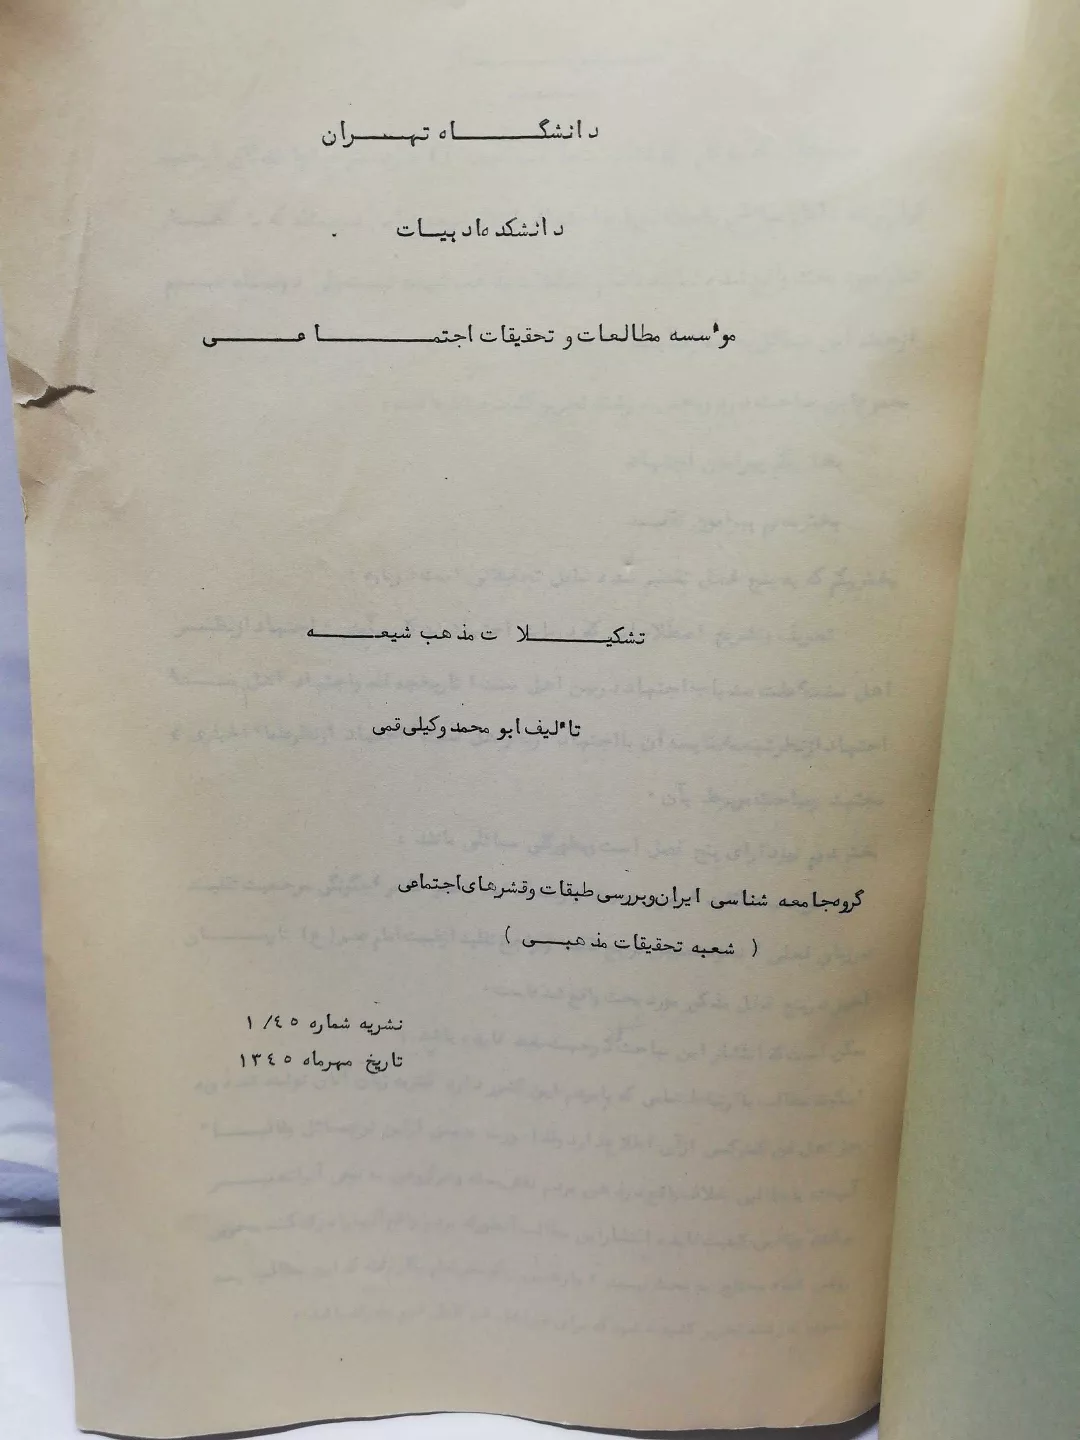 دانشگاه تهران
دانشکده ادبیات
موٴسسه مطالعات و تحقیقات اجتماعی
تشکیلات مذهب شیعه
تاٴلیف ابو محمد وکیلی قمی
گروه جامعه شناسی ایران و بررسی طبقات و قشرهای اجتماعی
( شعبه تحقیقات مذهبی )
نشریه شماره ۱/۴۵
تاریخ مهرماه ۱۳۴۵